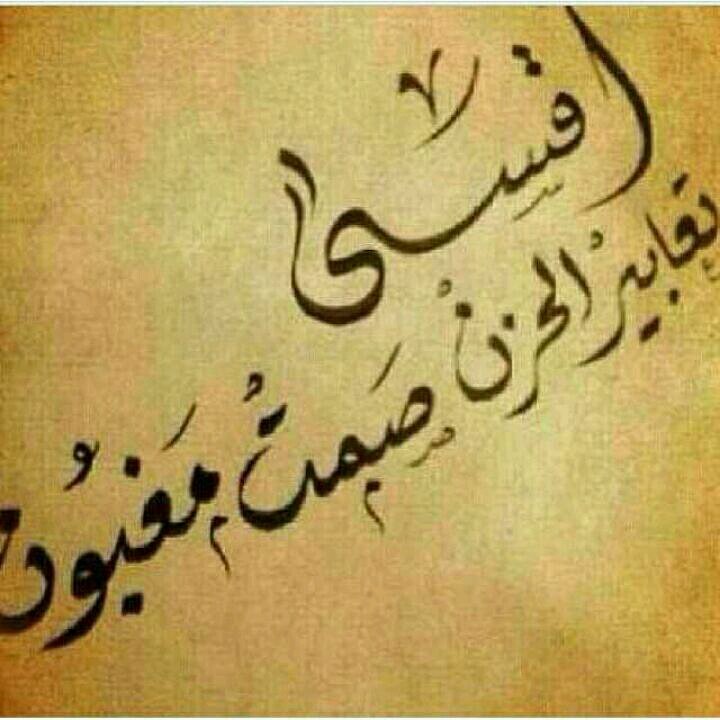 اقسى
تعابير الحزن صمت مغبون